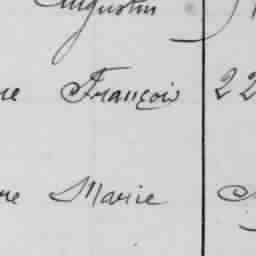 Augustin
re François 22
re Marie